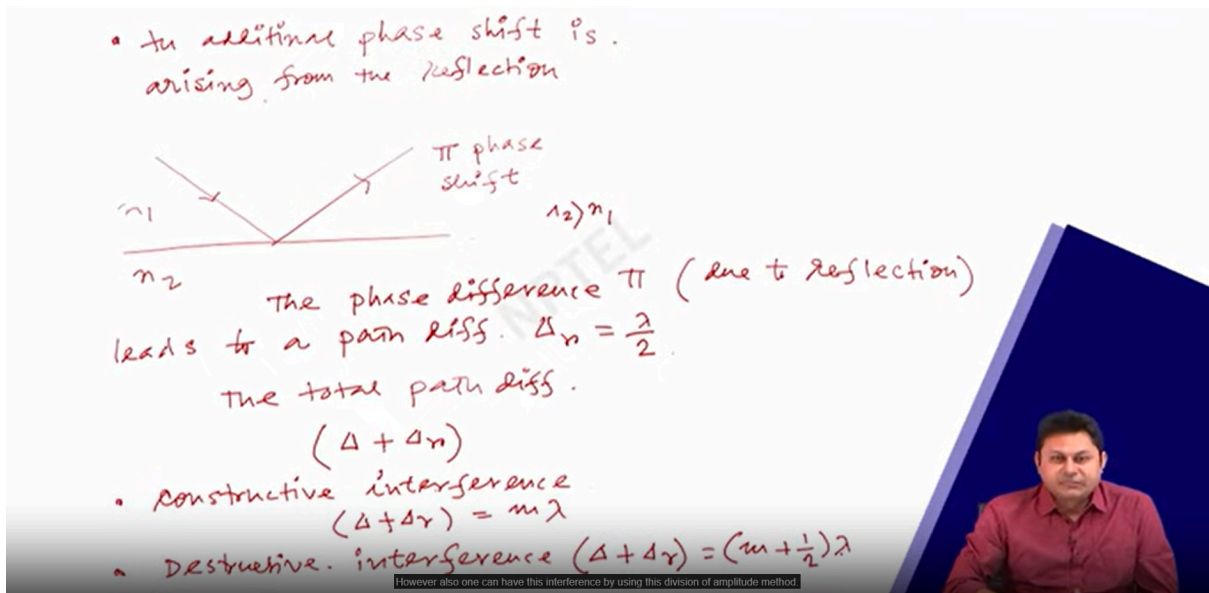 • An additinal phase shift is.
arising from the reflection
π phase
shift
n1
n2>n1
n2
NPTEL
The phase difference π (due to reflection)
leads to a path diff. Δr = λ/2
The total path diff.
(Δ + Δr)
• Constructive interference
(Δ+Δr) = mλ
• Destructive. interference (Δ + Δr) = (m+1/2)λ
However also one can have this interference by using this division of amplitude method.